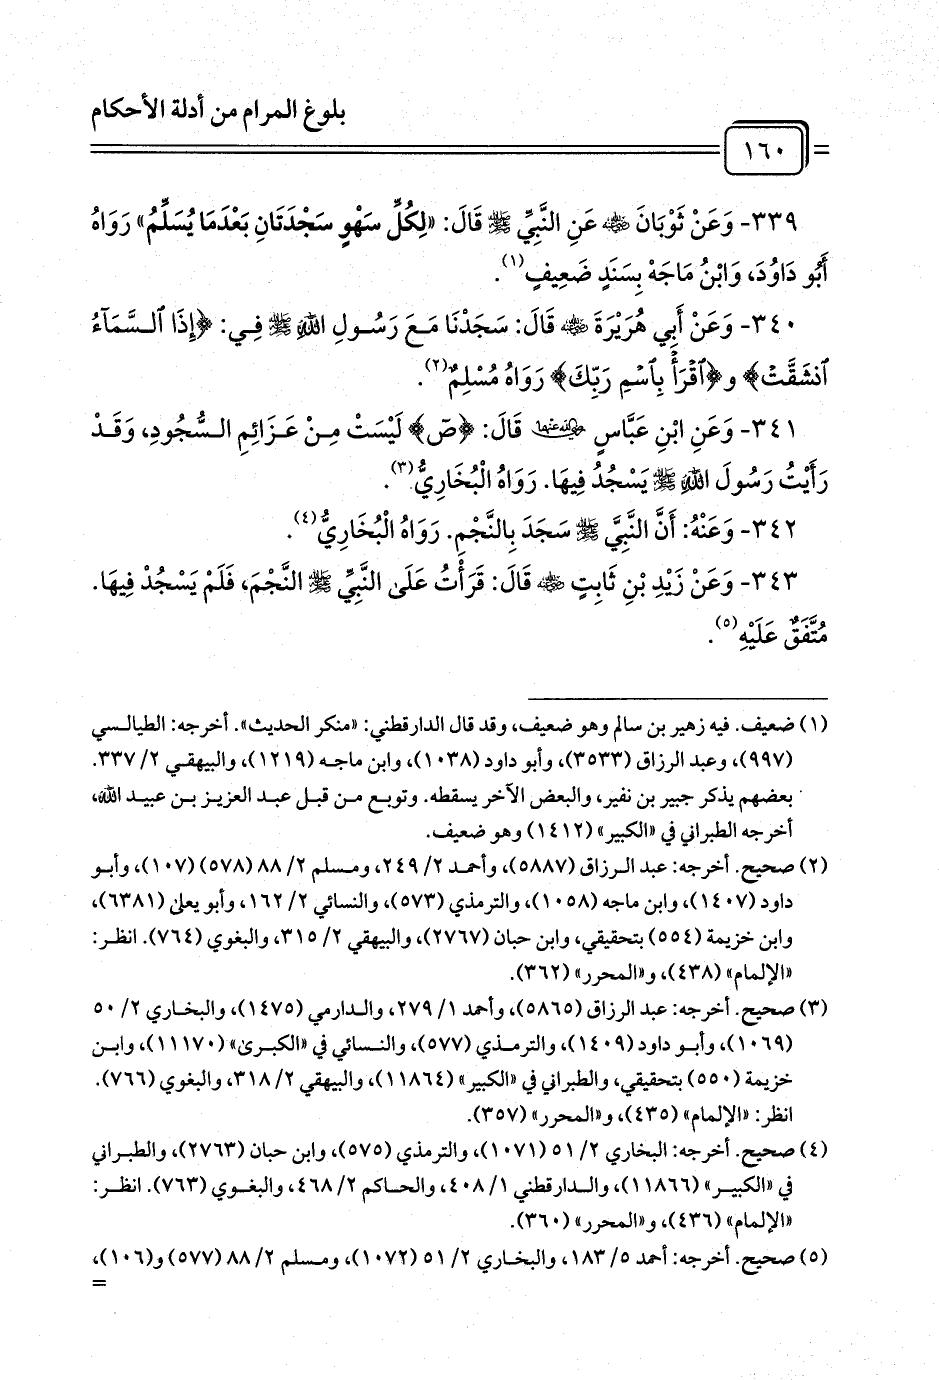 بلوغ المرام من أدلة الأحكام
١٦٠
٣٣٩- وَعَنْ ثَوْبَانَ رضي الله عنه عَنِ النَّبِيِّ ﷺ قَالَ: «لِكُلِّ سَهْوٍ سَجْدَتَانِ بَعْدَمَا يُسَلِّمُ» رَوَاهُ
أَبُو دَاوُدَ، وَابْنُ مَاجَهْ بِسَنَدٍ ضَعِيفٍ(١).
٣٤٠- وَعَنْ أَبِي هُرَيْرَةَ رضي الله عنه قَالَ: سَجَدْنَا مَعَ رَسُولِ اللهِ ﷺ فِي: ﴿إِذَا ٱلسَّمَآءُ
ٱنشَقَّتْ﴾ و﴿ٱقْرَأْ بِٱسْمِ رَبِّكَ﴾ رَوَاهُ مُسْلِمٌ(٢).
٣٤١- وَعَنِ ابْنِ عَبَّاسٍ رضي الله عنهما قَالَ: ﴿صٓ﴾ لَيْسَتْ مِنْ عَزَائِمِ السُّجُودِ، وَقَدْ
رَأَيْتُ رَسُولَ اللهِ ﷺ يَسْجُدُ فِيهَا. رَوَاهُ الْبُخَارِيُّ(٣).
٣٤٢- وَعَنْهُ: أَنَّ النَّبِيَّ ﷺ سَجَدَ بِالنَّجْمِ. رَوَاهُ الْبُخَارِيُّ(٤).
٣٤٣- وَعَنْ زَيْدِ بْنِ ثَابِتٍ رضي الله عنه قَالَ: قَرَأْتُ عَلَى النَّبِيِّ ﷺ النَّجْمَ، فَلَمْ يَسْجُدْ فِيهَا.
مُتَّفَقٌ عَلَيْهِ(٥).
(١) ضعيف. فيه زهير بن سالم وهو ضعيف، وقد قال الدارقطني: «منكر الحديث». أخرجه: الطيالسي
(٩٩٧)، وعبد الرزاق (٣٥٣٣)، وأبو داود (١٠٣٨)، وابن ماجه (١٢١٩)، والبيهقي ٢/ ٣٣٧.
بعضهم يذكر جبير بن نفير، والبعض الآخر يسقطه. وتوبع من قبل عبد العزيز بن عبيد الله،
أخرجه الطبراني في «الكبير» (١٤١٢) وهو ضعيف.
(٢) صحيح. أخرجه: عبد الرزاق (٥٨٨٧)، وأحمد ٢/ ٢٤٩، ومسلم ٢/ ٨٨ (٥٧٨) (١٠٧)، وأبو
داود (١٤٠٧)، وابن ماجه (١٠٥٨)، والترمذي (٥٧٣)، والنسائي ٢/ ١٦٢، وأبو يعلى (٦٣٨١)،
وابن خزيمة (٥٥٤) بتحقيقي، وابن حبان (٢٧٦٧)، والبيهقي ٢/ ٣١٥، والبغوي (٧٦٤). انظر:
«الإلمام» (٤٣٨)، و«المحرر» (٣٦٢).
(٣) صحيح. أخرجه: عبد الرزاق (٥٨٦٥)، وأحمد ١/ ٢٧٩، والدارمي (١٤٧٥)، والبخاري ٢/ ٥٠
(١٠٦٩)، وأبو داود (١٤٠٩)، والترمذي (٥٧٧)، والنسائي في «الكبرى» (١١١٧٠)، وابن
خزيمة (٥٥٠) بتحقيقي، والطبراني في «الكبير» (١١٨٦٤)، والبيهقي ٢/ ٣١٨، والبغوي (٧٦٦).
انظر: «الإلمام» (٤٣٥)، و«المحرر» (٣٥٧).
(٤) صحيح. أخرجه: البخاري ٢/ ٥١ (١٠٧١)، والترمذي (٥٧٥)، وابن حبان (٢٧٦٣)، والطبراني
في «الكبير» (١١٨٦٦)، والدارقطني ١/ ٤٠٨، والحاكم ٢/ ٤٦٨، والبغوي (٧٦٣). انظر:
«الإلمام» (٤٣٦)، و«المحرر» (٣٦٠).
(٥) صحيح. أخرجه: أحمد ٥/ ١٨٣، والبخاري ٢/ ٥١ (١٠٧٢)، ومسلم ٢/ ٨٨ (٥٧٧) و(١٠٦)،
=